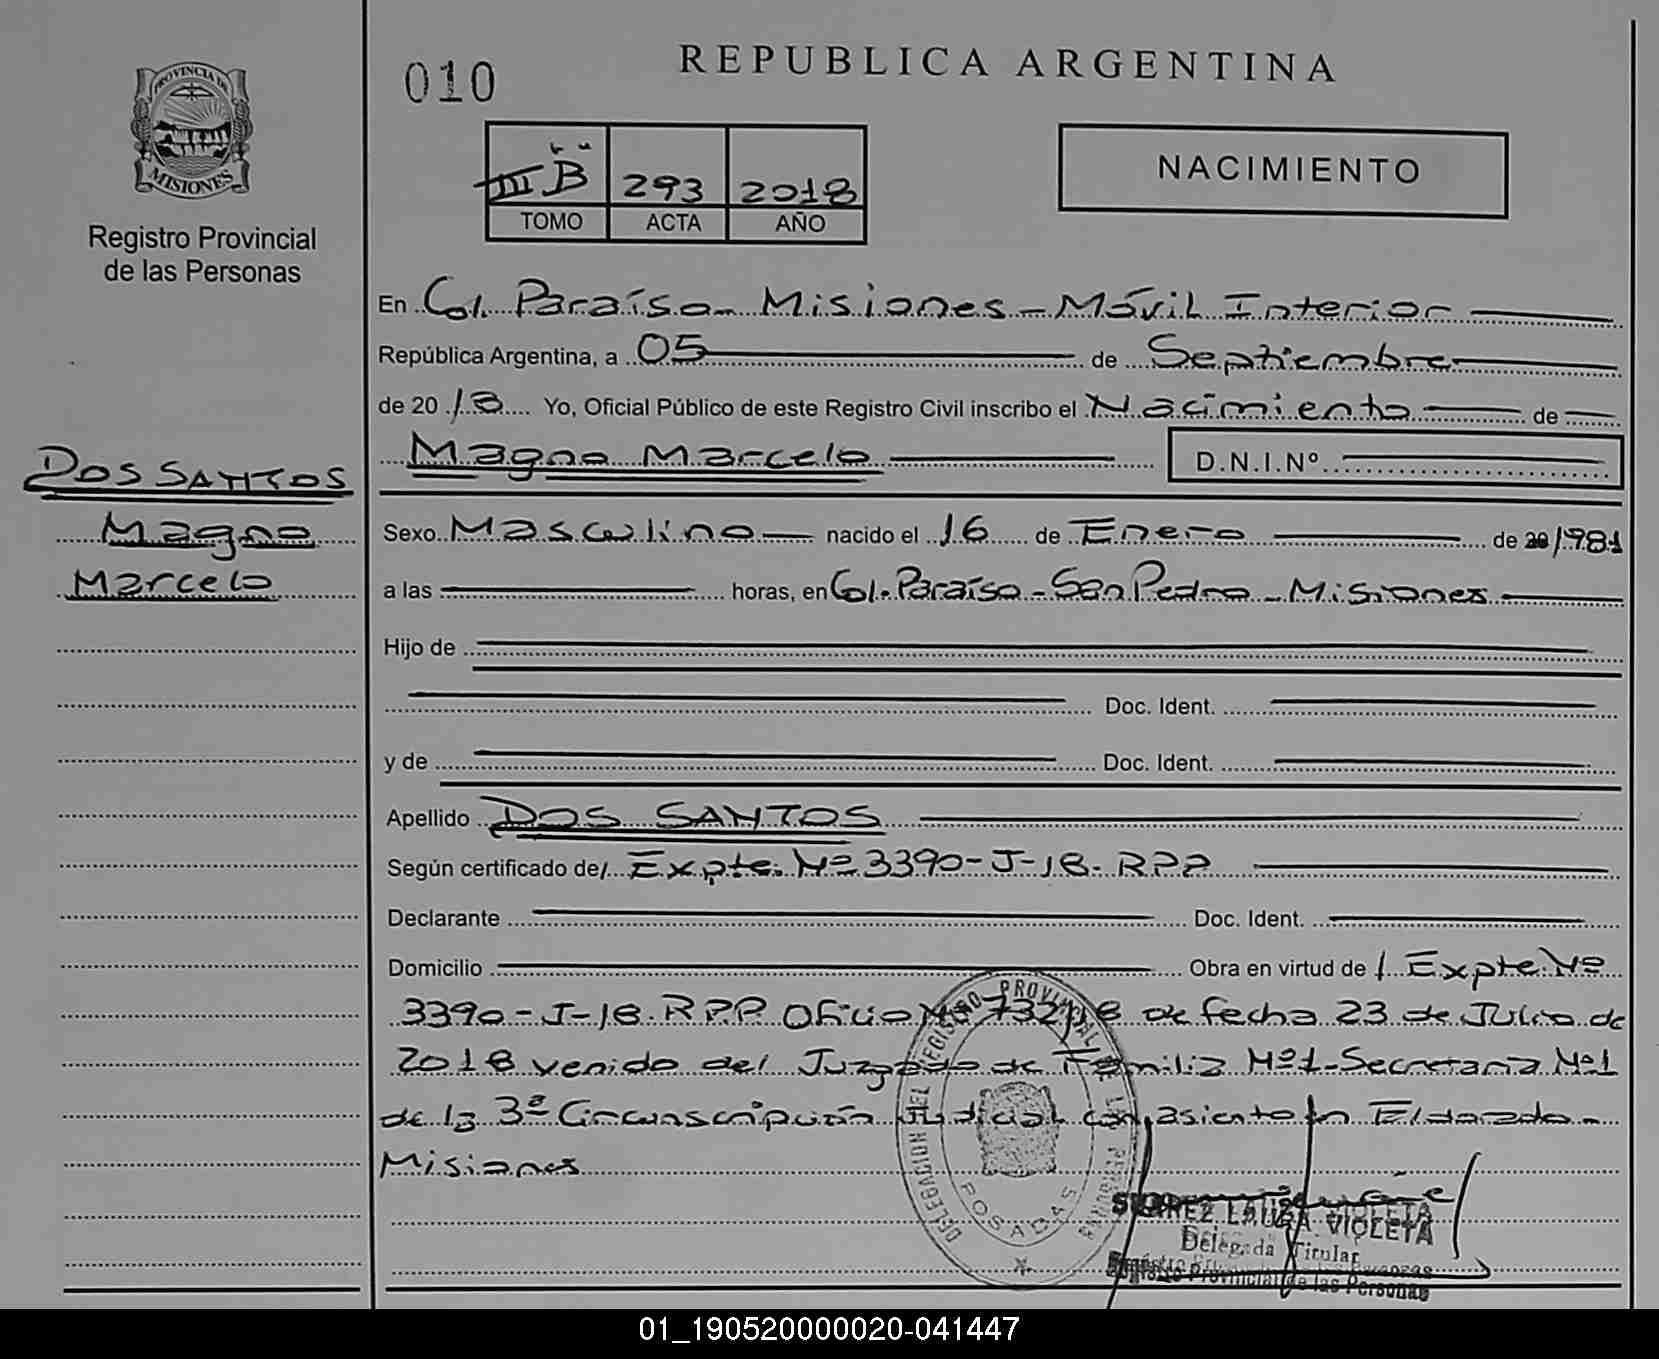 REPUBLICA ARGENTINA
010
PROVINCIA DE
MISIONES
Registro Provincial
de las Personas
III B 293 2018
TOMO ACTA AÑO
NACIMIENTO
En Col. Paraíso - Misiones - Móvil Interior
República Argentina, a 05 de Septiembre
de 20 18 Yo, Oficial Público de este Registro Civil inscribo el Nacimiento de
Magno Marcelo D.N.I.Nº
DOS SANTOS
Magno
Marcelo
Sexo Masculino nacido el 16 de Enero de 1981
a las horas, en Col. Paraíso - San Pedro - Misiones
Hijo de
Doc. Ident.
y de Doc. Ident.
Apellido DOS SANTOS
Según certificado de/ Expte. Nº 3390-J-18. RPP
Declarante Doc. Ident.
Domicilio Obra en virtud de / Expte Nº
3390-J-18. RPP Oficio Nº 732/18 de fecha 23 de Julio de
2018 venido del Juzgado de Familia Nº1-Secretaria Nº1
de la 3ª Circunscripción Judicial con asiento en Eldorado -
Misiones
DELEGACION DEL REGISTRO PROVINCIAL DE LAS PERSONAS
POSADAS
SUAREZ LAURA VIOLETA
Delegada Titular
Registro Provincial de las Personas
01_190520000020-041447